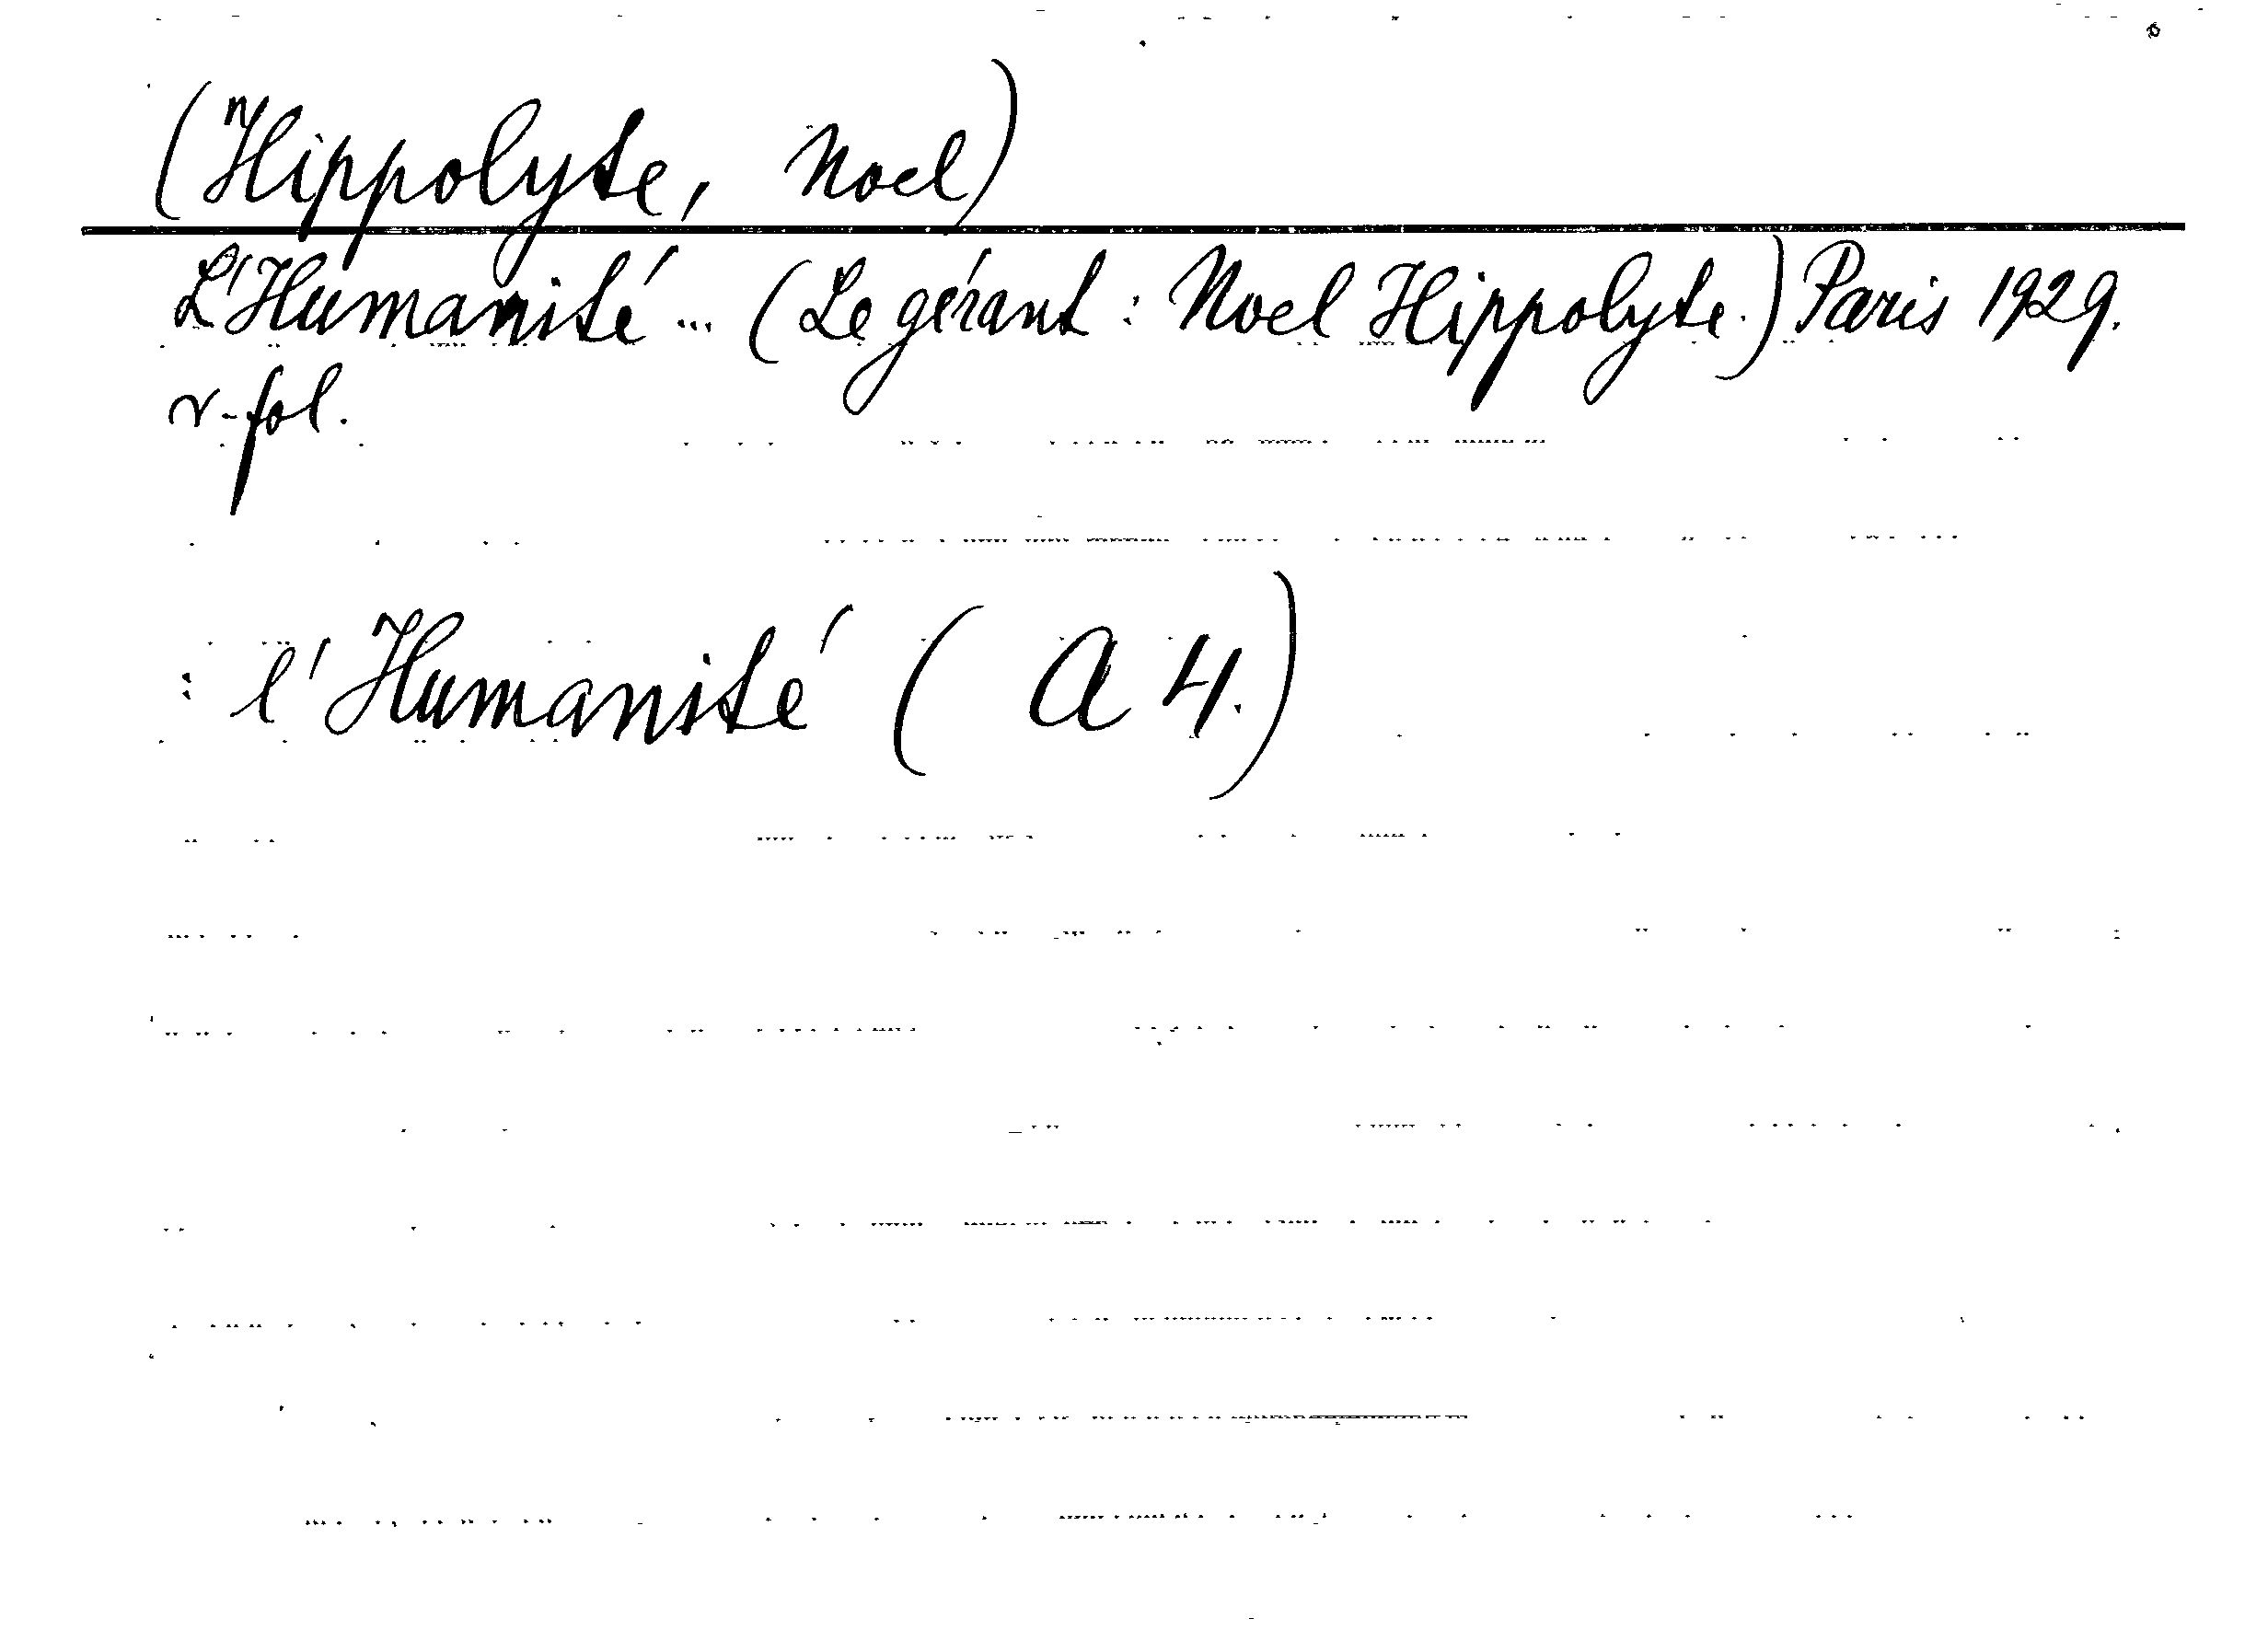 (Hippolyte, Noel)
L'Humanité... (Le gérant: Noel Hippolyte.) Paris 1929.
r-fol.
: l'Humanité (A 4.)